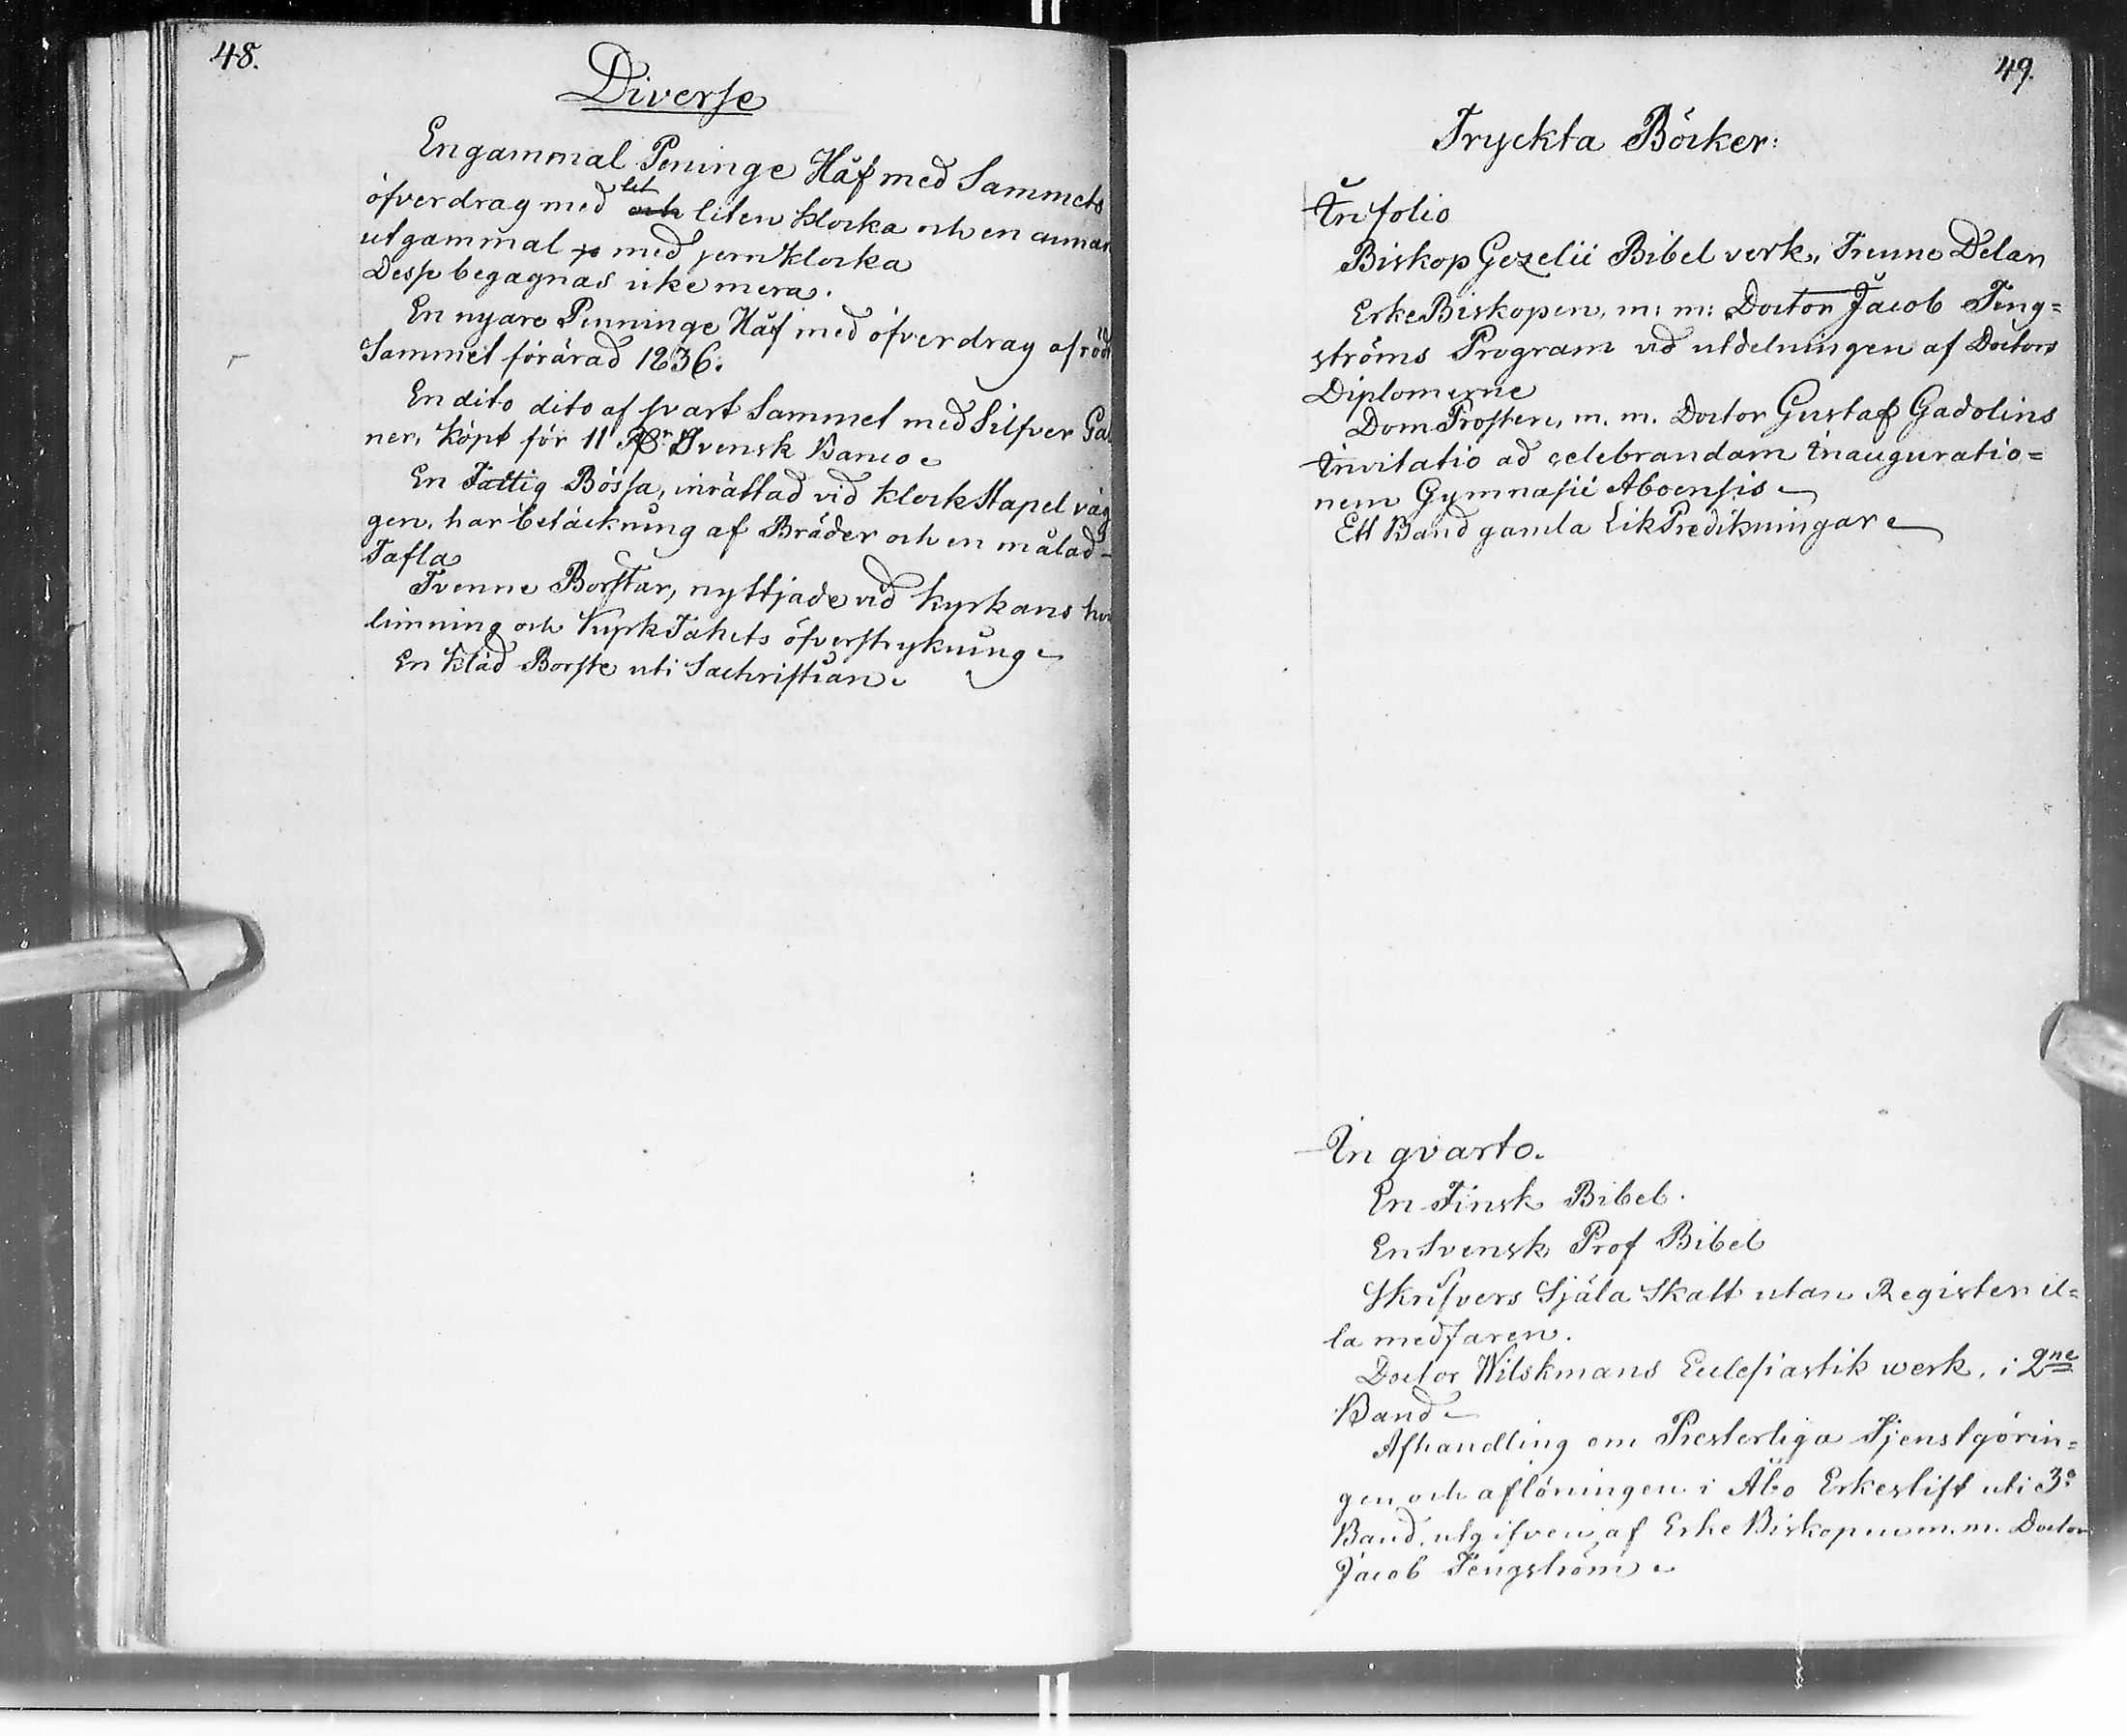 48.
Diverse
En gammal Peninge Håf med Sammets
öfverdrag med och liten Klocka och en annan
utgammal med jern Klocka
Desse begagnas icke mera.
En nyare Penninge Håf med öfverdrag af röd
Sammet förärad 1836.
En dito dito af svart Sammet med Silfver Ga
ner, köpt för 11 Rdr Svensk Banco
En Fattig Bössa, inrättad vid KlockStapel väg
gen, har betäckning af Bräder och en målad
Tafla
Tvenne Borstar, nyttjade vid Kyrkans hvi
limning och KyrkTakets öfverstrykning
En Kläd Borste uti Sachristian.
49.
Tryckta Böcker:
In folio
Biskop Gezelii Bibel verk, Trenne Delar
ErkeBiskopen, m: m: Doctor Jacob Teng=
ströms Program vid utdelningen af Doctors
Diplomerne
DomProsten, m. m. Doctor Gustaf Gadolins
Invitatio ad celebrandam Inauguratio=
nem Gymnasii Aboensis
Ett Band gamla LikPredikningar
In qvarto.
En Finsk Bibel.
En Svensk Prof Bibel
Skrifvers Själa Skatt utan Register il=
la medfaren.
Doctor Wilskmans Ecclesiastik werk, i 2ne
Band
Afhandling om Presterliga Tjenstgörin=
gen och aflöningen i Åbo Erkestift uti 3e
Band, utgifven af Erke Biskopen m. m. Doctor
Jacob Tengström